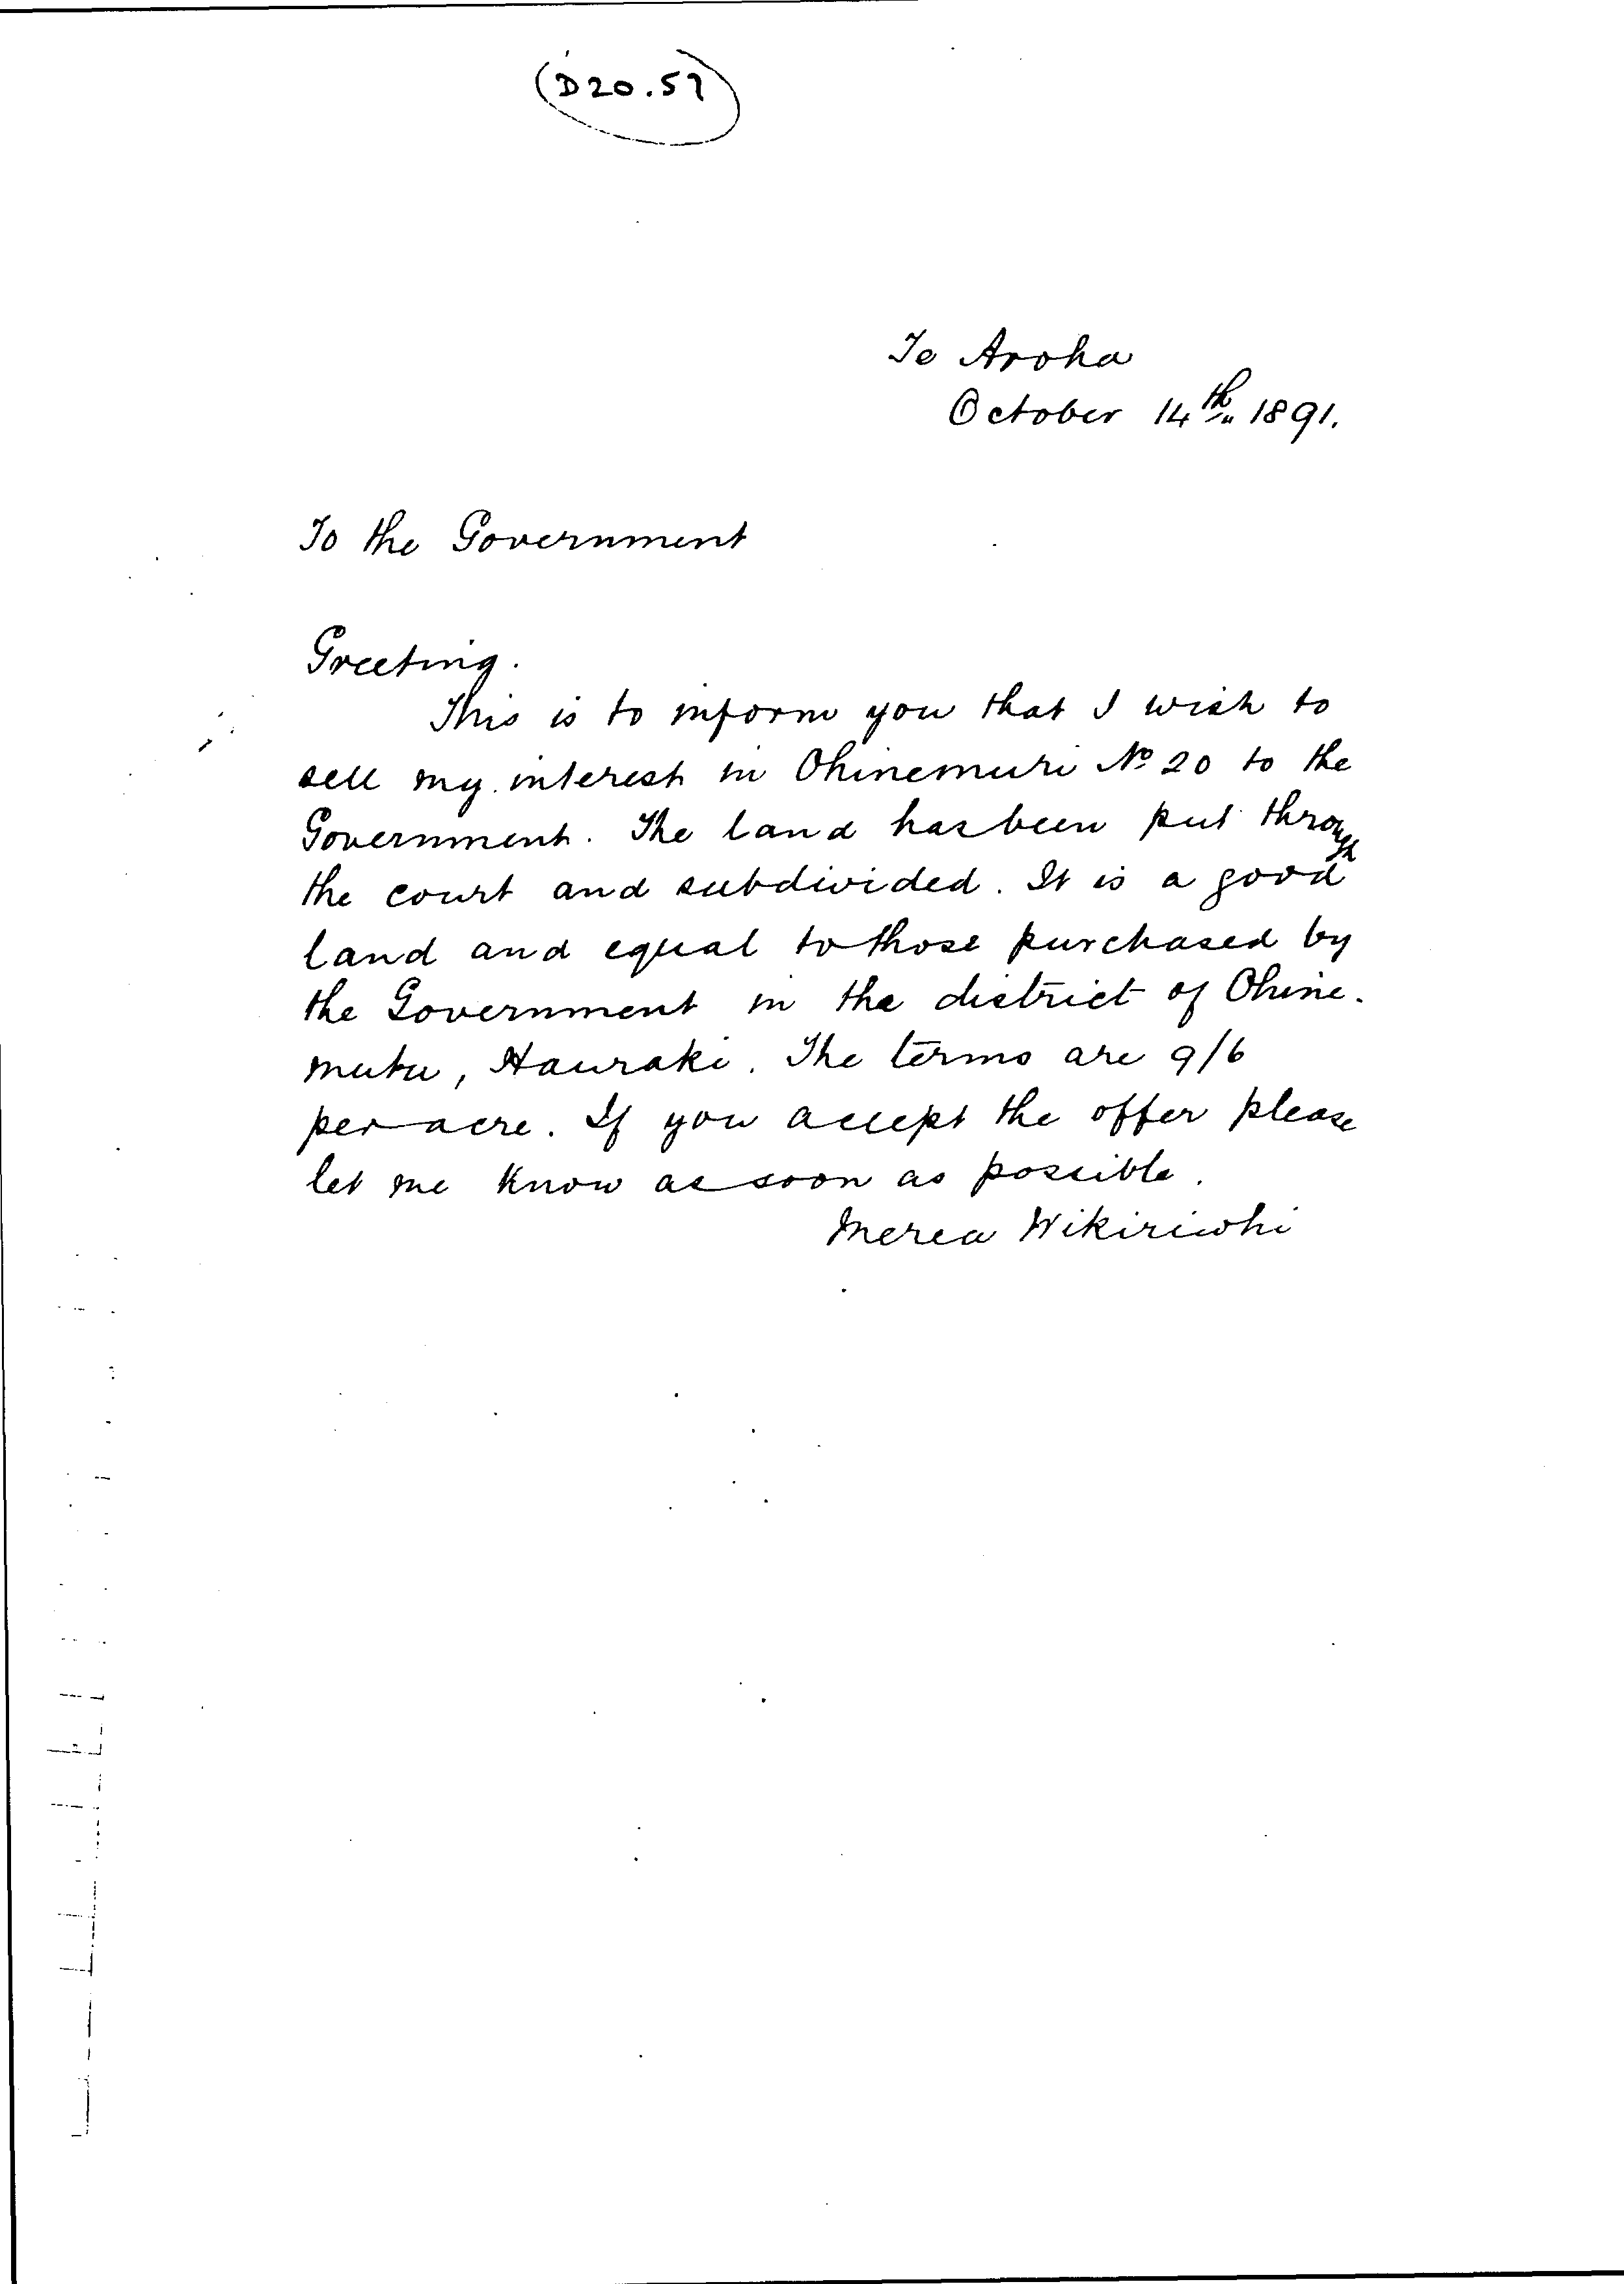 (D20.57)
Te Aroha
October 14th 1891.
To the Government
Greeting.
This is to inform you that I wish to
sell my interest in Ohinemuri No 20 to the
Government. The land has been put through
the court and subdivided. It is a good
land and equal to those purchased by
the Government in the district of Ohine-
mutu, Hauraki. The terms are 9/6
per acre. If you accept the offer please
let me know as soon as possible.
Merea Wikiriwhi